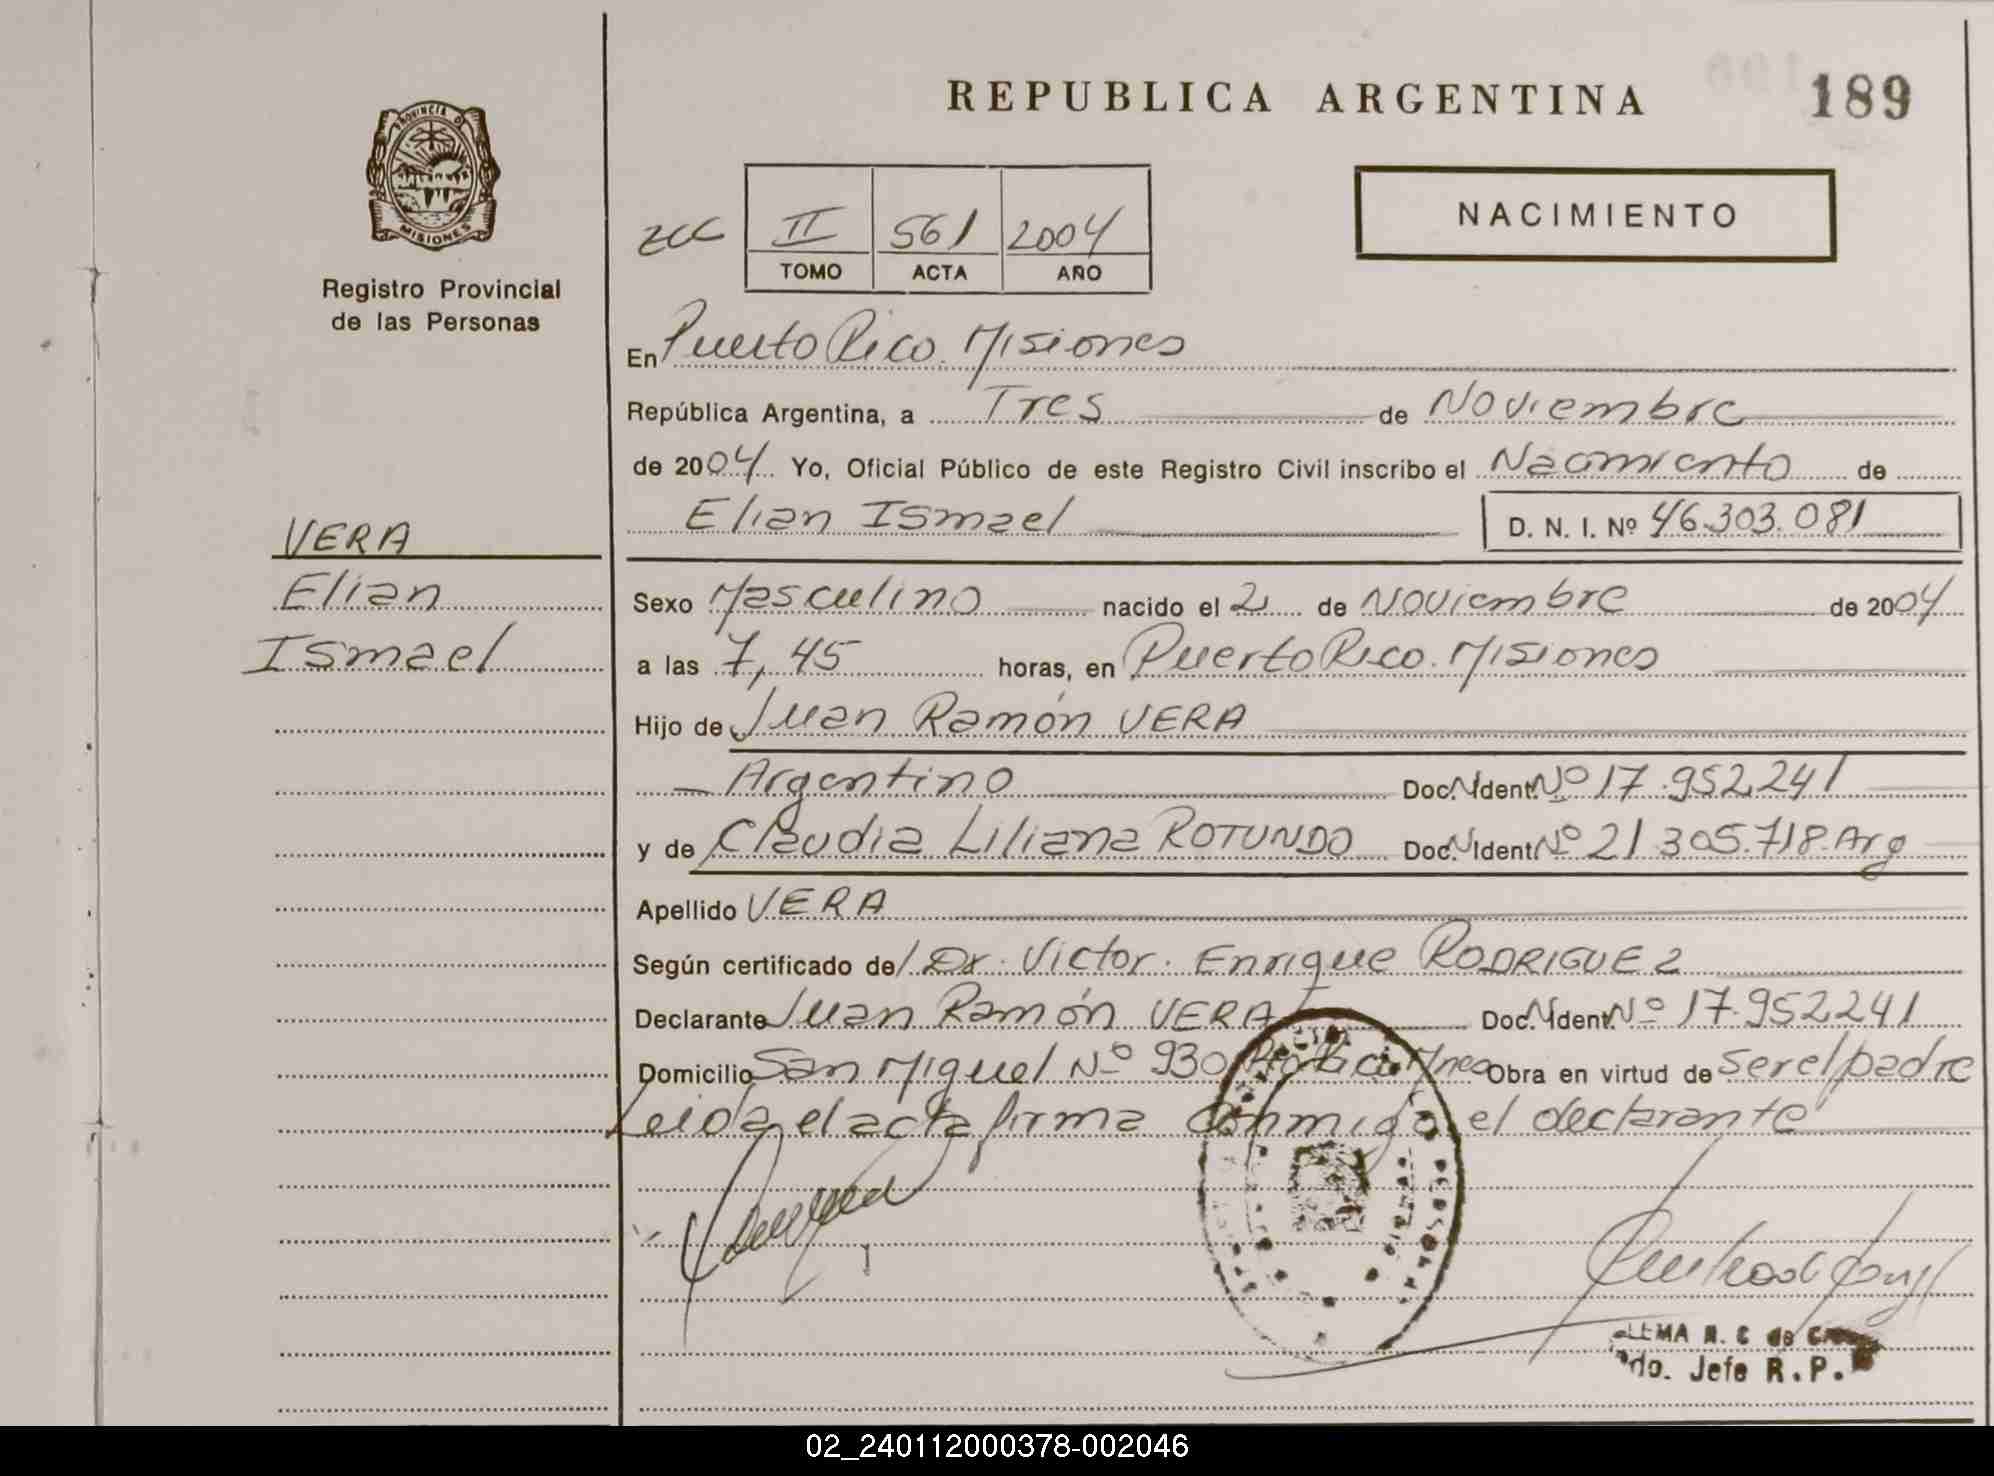 REPUBLICA ARGENTINA
189
PROVINCIA DE
MISIONES
Registro Provincial
de las Personas
II 561 2004
TOMO ACTA AÑO
NACIMIENTO
En Puerto Rico. Misiones
República Argentina, a Tres de Noviembre
de 2004 Yo, Oficial Público de este Registro Civil inscribo el Nacimiento de
Elian Ismael D. N. I. Nº 46.303.081
VERA
Elian
Ismael
Sexo Masculino nacido el 2 de Noviembre de 2004
a las 7,45 horas, en Puerto Rico. Misiones
Hijo de Juan Ramón VERA
Argentino Doc. N. Ident. Nº 17.952.241
y de Claudia Liliana ROTUNDO Doc. N. Ident. Nº 21.305.718. Arg
Apellido VERA
Según certificado del Dr. Victor. Enrique RODRIGUEZ
Declarante Juan Ramón VERA Doc. N. Ident. Nº 17.952241
Domicilio San Miguel Nº 930 Obra en virtud de ser el padre
Leida el acta firma conmigo el declarante
LEMA N. C de
do. Jefe R. P.
02_240112000378-002046